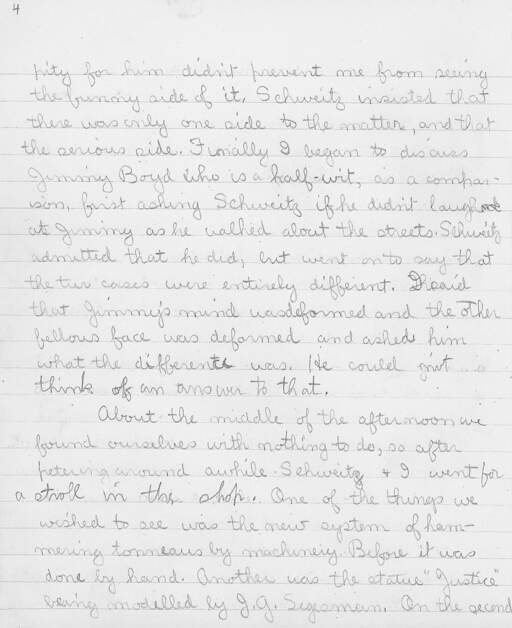 4
pity for him didn't prevent me from seeing
the funny side of it. Schweitz insisted that
there was only one side to the matter, and that
the serious side. Finally I began to discuss
Jimmy Boyd who is a half-wit, as a compar-
ison, first asking Schweitz if he didn't laugh
at Jimmy as he walked about the streets. Schweitz
admitted that he did, but went on to say that
the two cases were entirely different. I said
that Jimmy's mind was deformed and the other
fellows face was deformed and asked him
what the difference was. He could n't
think of an answer to that.
About the middle of the afternoon we
found ourselves with nothing to do, so after
petering around awhile Schweitz & I went for
a stroll in the shop. One of the things we
wished to see was the new system of ham-
mering tonneaus by machinery. Before it was
done by hand. Another was the statue "Justice"
being modelled by J. G. Segesman. On the second